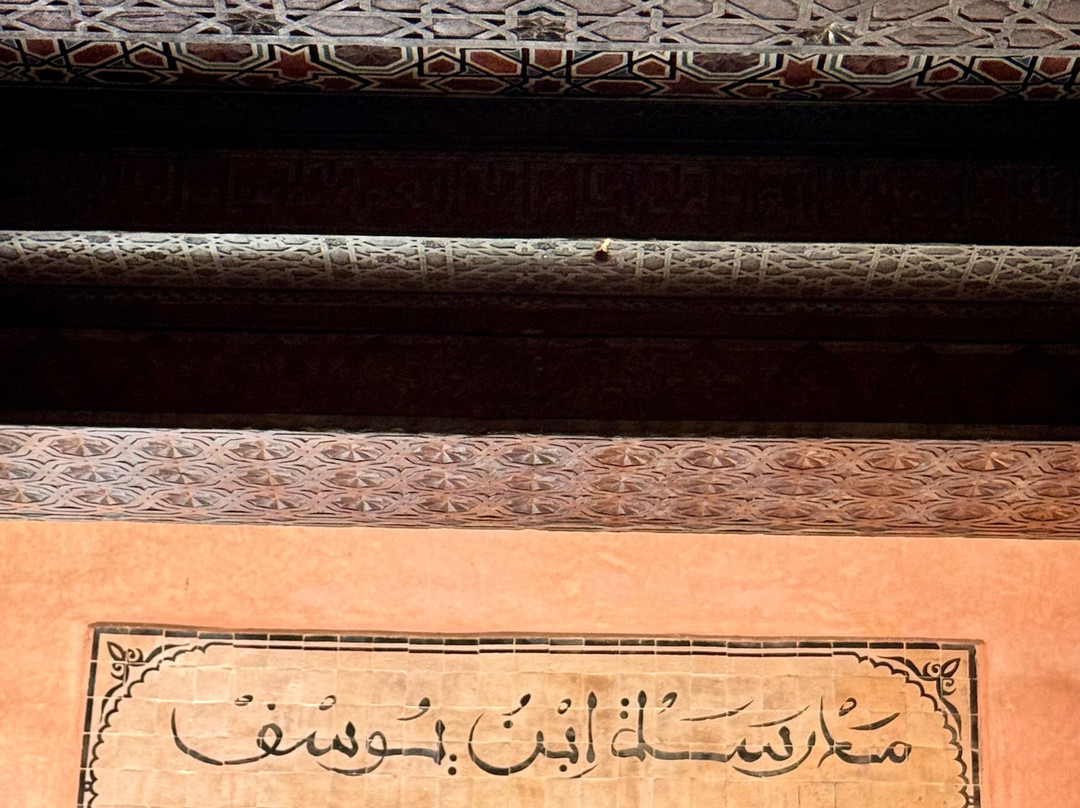 مَدْرَسَة ابْنُ يُوسُفْ